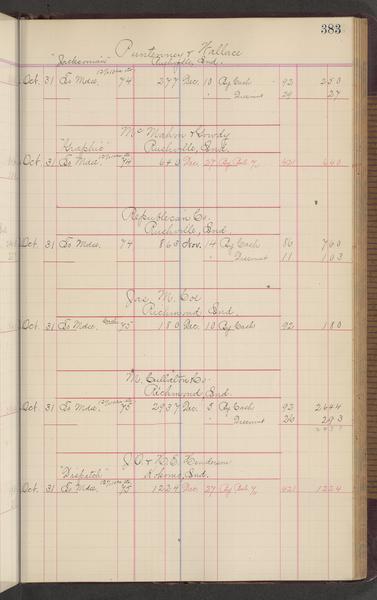 383
"Jacksonian" Puntenney & Wallace
Rushville, Ind.
Oct. 31 To Mdse. 74 277 Dec. 10 By Cash 92 250
" Discount 29 27
McMahin & Gowdy
"Graphic" Rushville, Ind.
Oct. 31 To Mdse. 74 640 Dec. 27 By Bal. 421 640
Republican Co.
Rushville, Ind.
Oct. 31 To Mdse. 74 863 Nov. 14 By Cash 86 760
" Discount 11 103
Jas. M. Coe
Richmond Ind
Oct. 31 To Mdse. Cash 75 180 Dec. 10 By Cash 92 180
M. Cullaton & Co.
Richmond, Ind.
Oct. 31 To Mdse. 75 2937 Dec. 5 By Cash 92 2644
" Discount 26 293
2937
J. O. & H. E. Henderson
"Dispatch" Kokomo, Ind.
Oct. 31 To Mdse. 75 1224 Dec. 27 By Bal. 421 1224